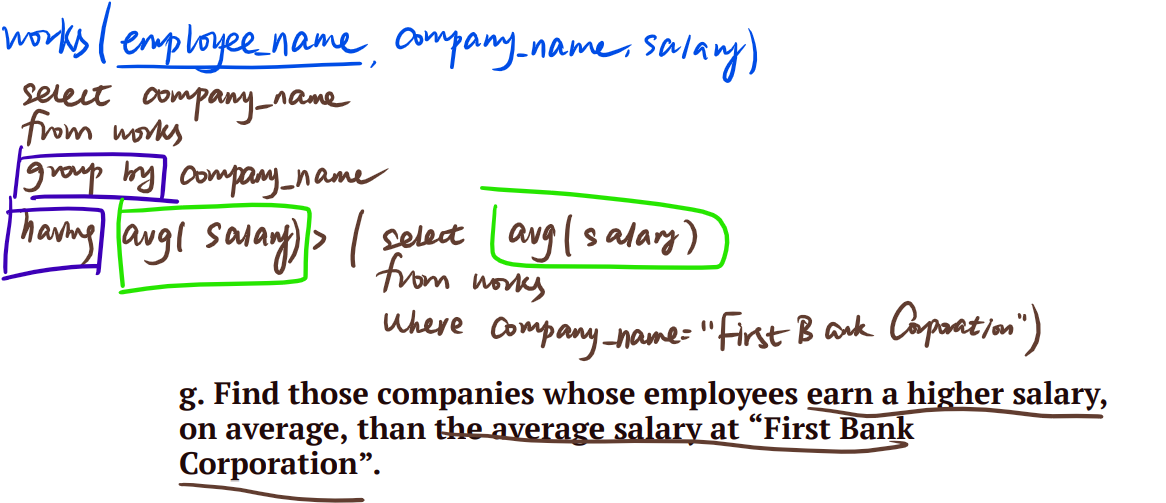 works(employee_name, company_name, salary)
select company_name
from works
group by company_name
having avg(salary) > (select avg(salary)
from works
where company_name="First Bank Corporation")
g. Find those companies whose employees earn a higher salary,
on average, than the average salary at “First Bank
Corporation”.